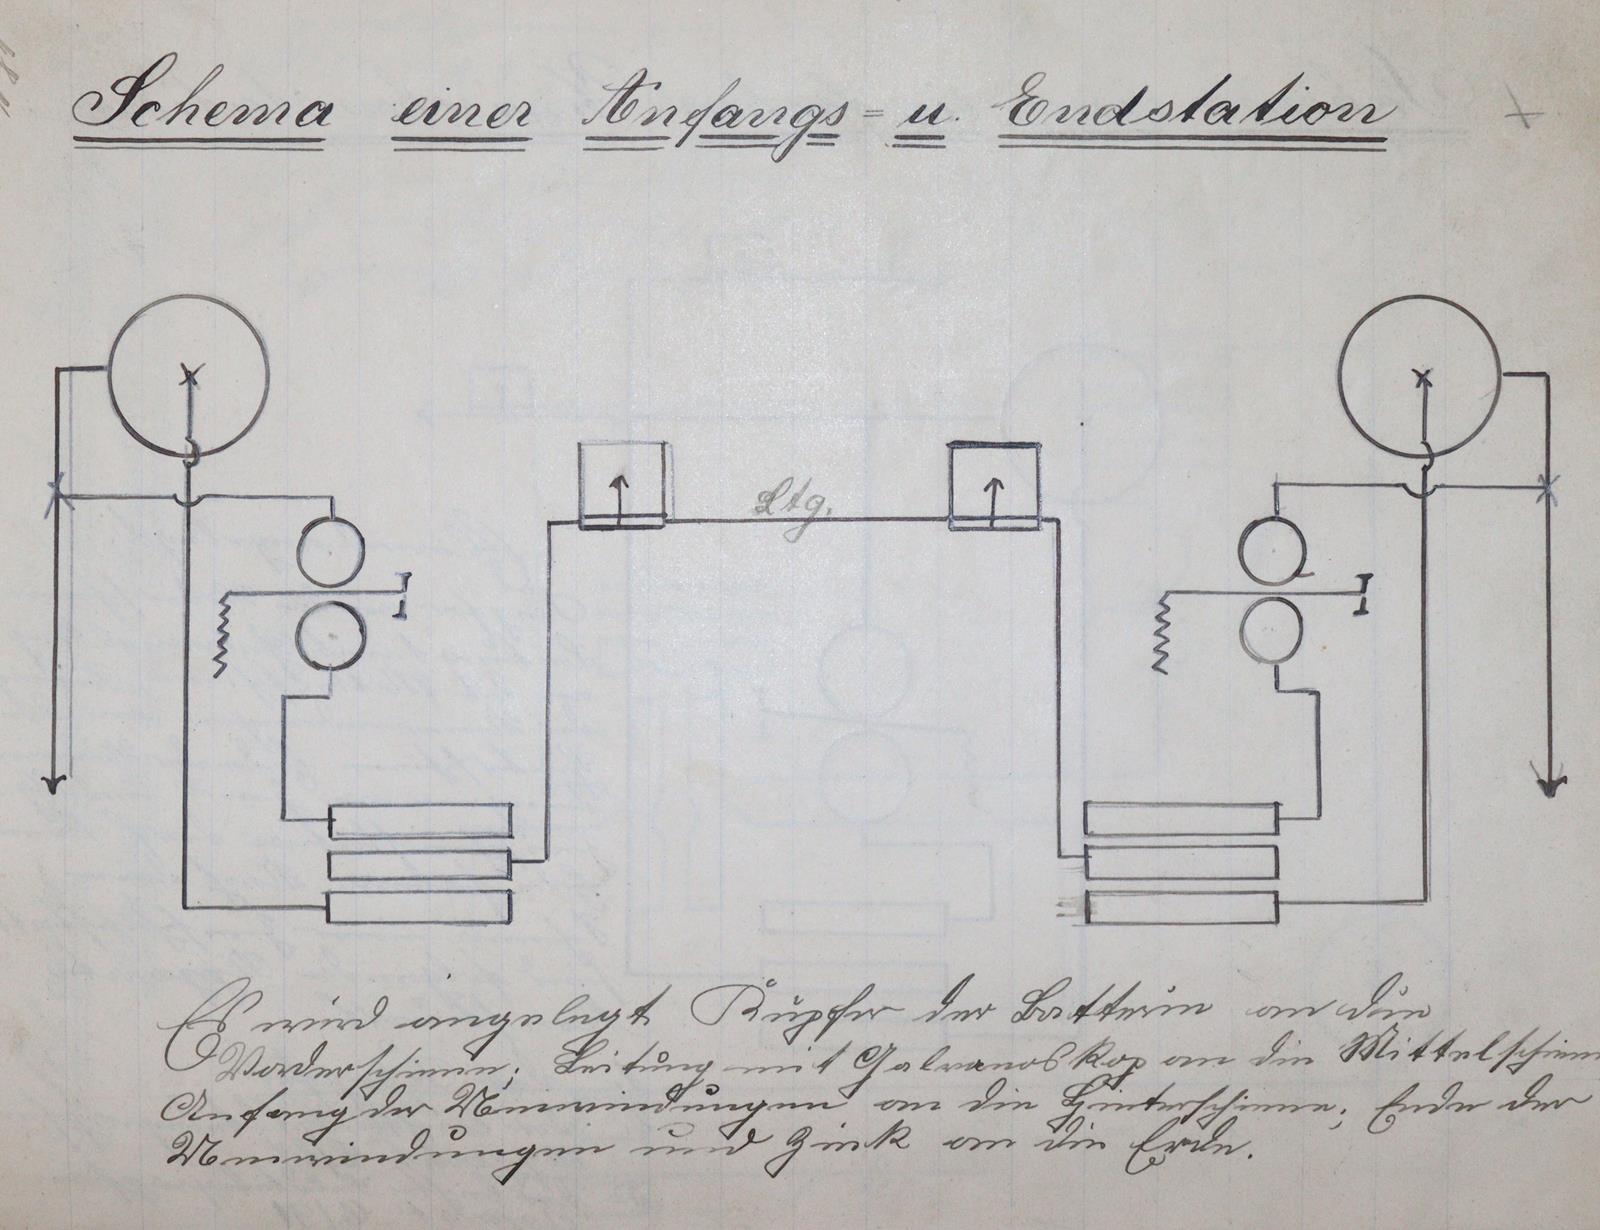 Schema einer Anfangs- u. Endstation
Ltg.
Es wird angelegt Kupfer der Batterie an die
Vorderschiene; Leitung mit Galvanoskop an die Mittelschiene
Anfang der Umwindungen an die Hinterschiene; Ende der
Umwindungen und Zink an die Erde.